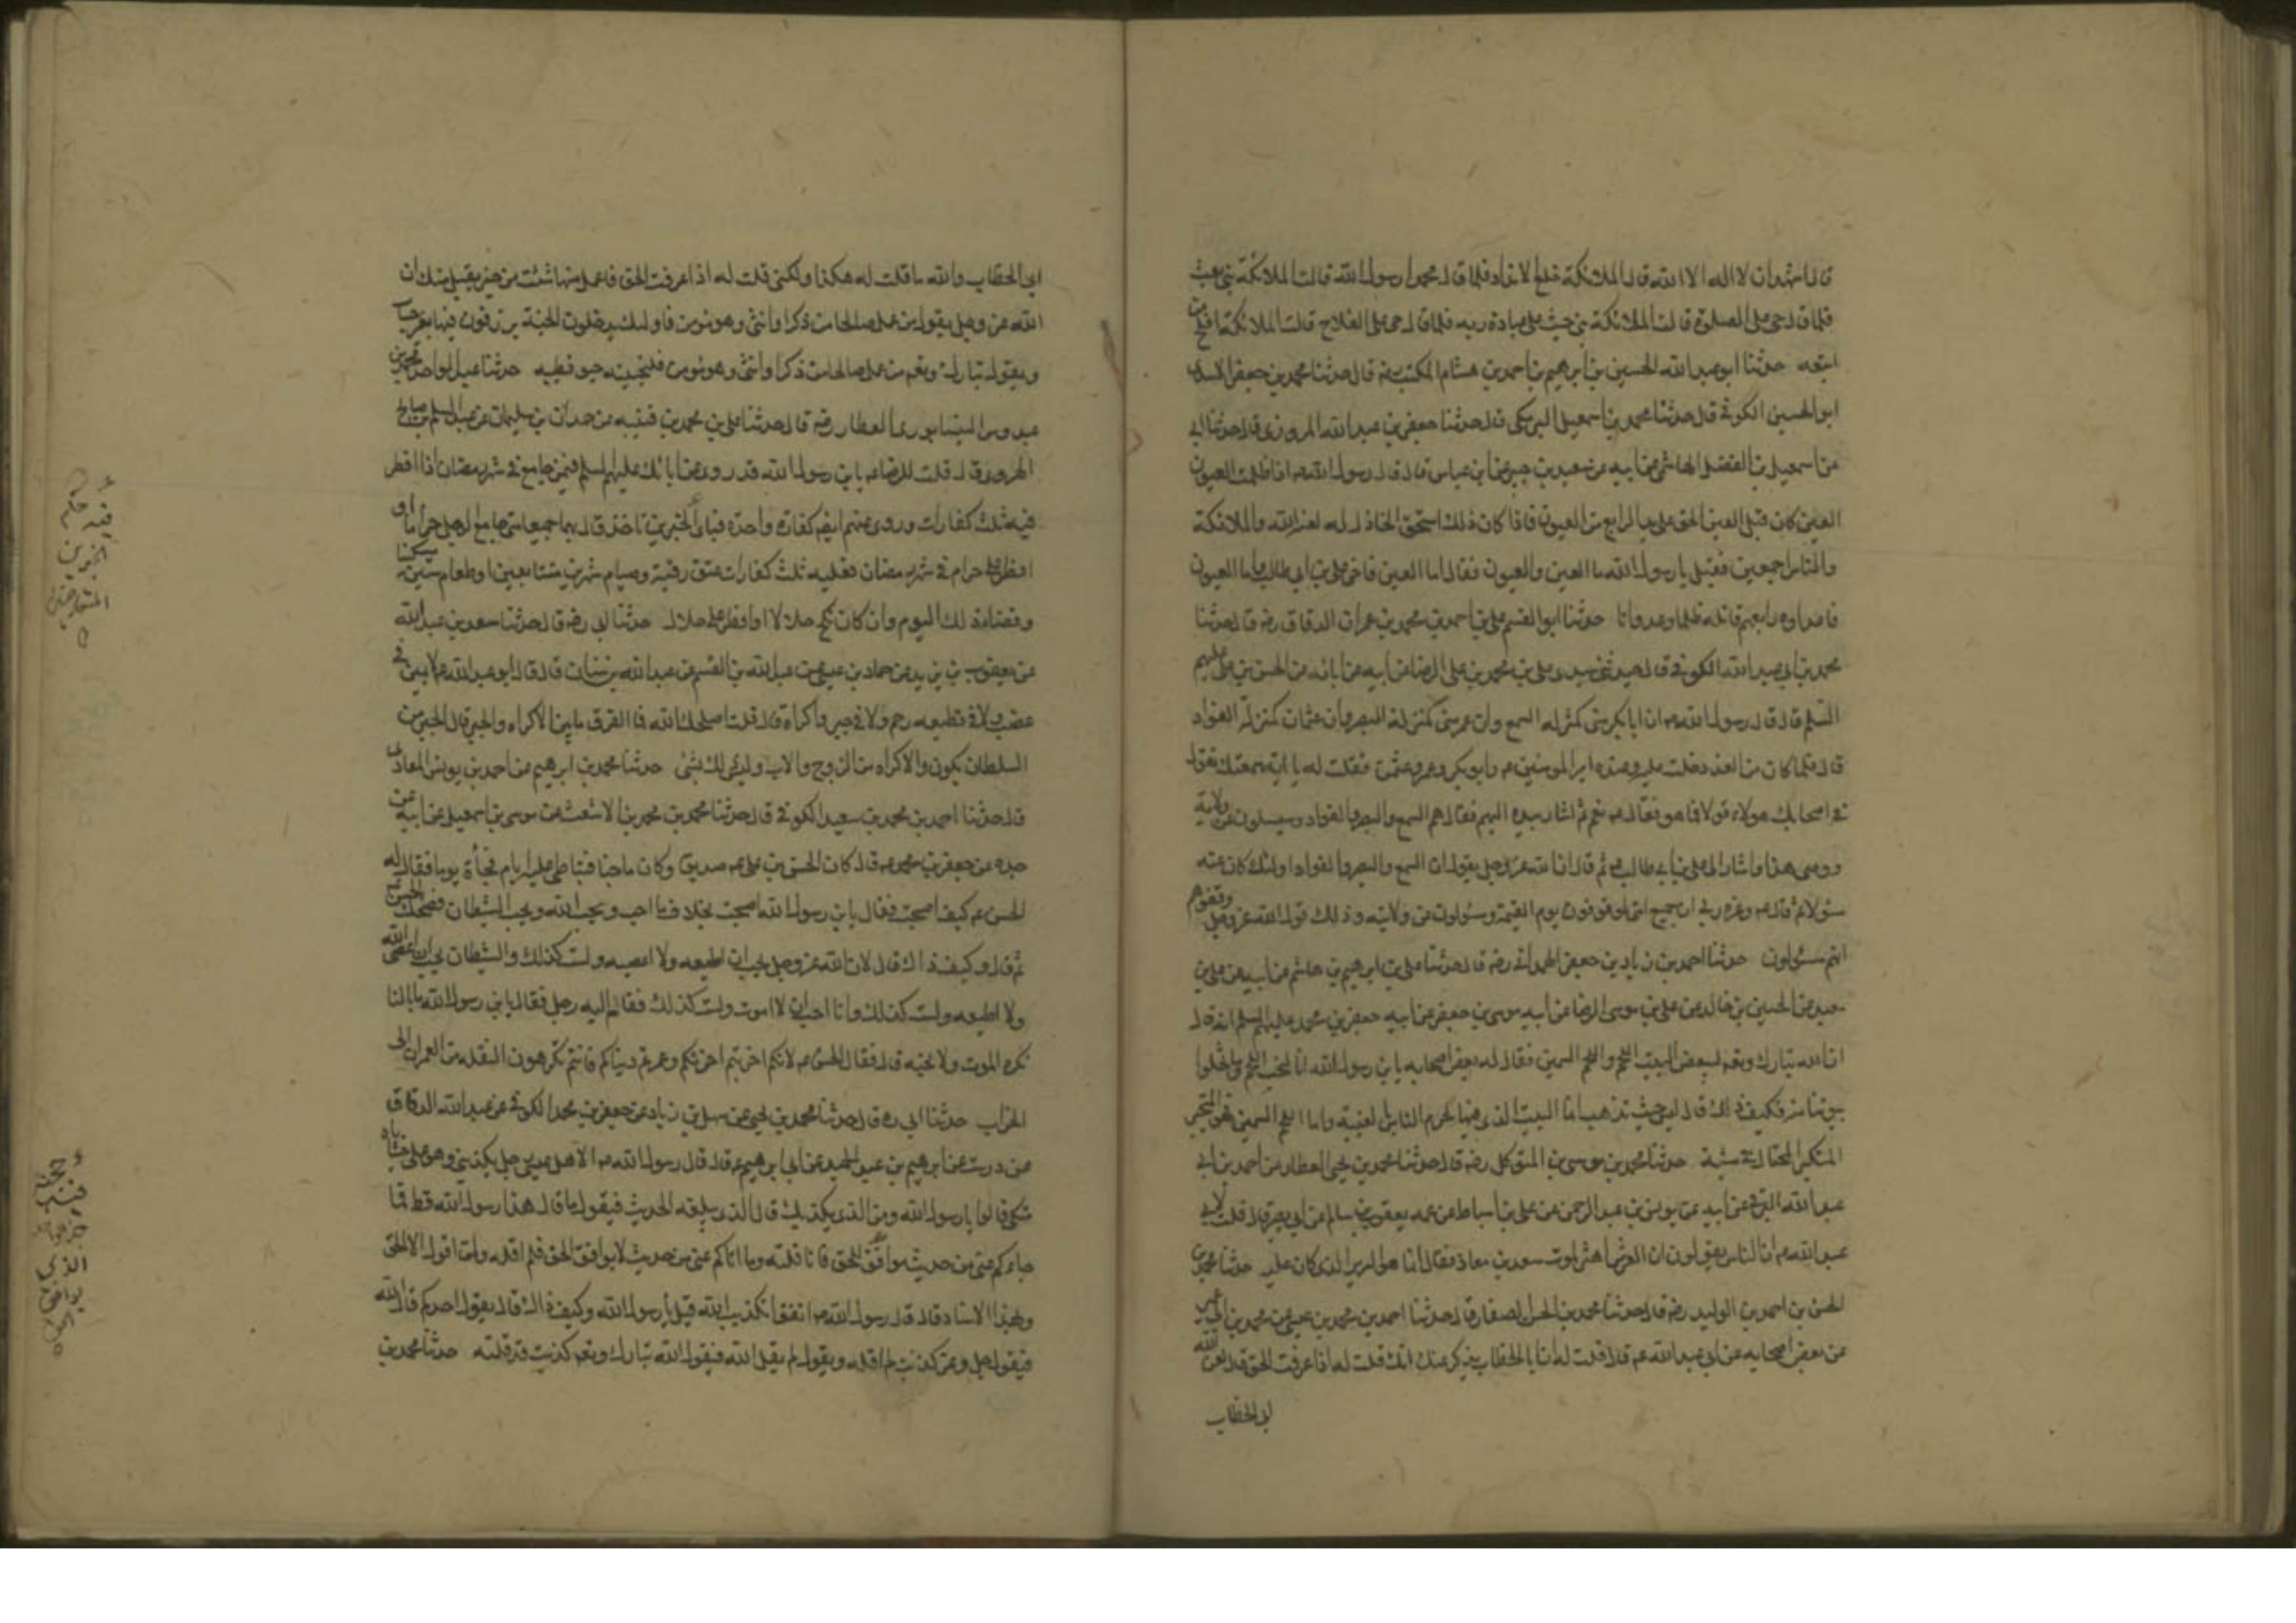 قال اشهد ان لا اله الا الله قال الملائكة خلع الانداد فلما قال محمدا رسول الله قالت الملائكة نبي بعث
فلما قال حي على الصلوة قالت الملائكة نبي حث على عبادة ربه فلما قال حي على الفلاح قالت الملائكة افلح من
اتبعه حدثنا ابو عبد الله الحسين بن ابرهيم بن احمد بن هشام المكتب رضه قال حدثنا محمد بن جعفر الاسدي
ابو الحسين الكوفي قال حدثنا محمد بن اسمعيل البرمكي قال حدثنا جعفر بن عبد الله المروزي قال حدثنا ابي
عن اسمعيل بن الفضل الهاشمي عن ابيه عن سعيد بن جبير عن ابن عباس قال قال رسول الله صه اذا ظلمت العيون
العين كان قتل العين الحق على يد الرابع من العيون فاذا كان ذلك استحق الخاذل له لعنة الله والملائكة
والناس اجمعين فقيل يا رسول الله ما العين والعيون فقال اما العين فاخي علي بن ابي طالب واما العيون
فاعداوه رابعهم قاتله ظلما وعدوانا حدثنا ابو القسم علي بن احمد بن محمد بن عمران الدقاق رضه قال حدثنا
محمد بن ابي عبد الله الكوفي قال حدثني سيدي علي بن محمد بن علي الرضا عن ابيه عن ابائه عن الحسن بن علي عليهم
السلم قال قال رسول الله صه ان ابا بكر مني كمنزله السمع وان عمر مني كمنزلة البصر وان عثمان كمنزلة الفواد
قال فلما كان من الغد دخلت عليه وعنده امير المومنين ع وابو بكر وعمر وعثمن فقلت له يا ابة سمعتك تقول
في اصحابك هولاء قولا فما هو فقال صه نعم ثم اشار بيده اليهم فقال هم السمع والبصر والفواد وسيسلون عن ولاية
وصيي هذا واشار الى علي بن ابي طالب ع ثم قال ان الله عز وجل يقول ان السمع والبصر والفواد اولئك كان عنه
مسئولا ثم قال صه وعزة ربي ان جميع امتي لموقوفون يوم القيمة ومسئولون عن ولايته وذلك قول الله عز وجل وقفوهم
انهم مسئولون حدثنا احمد بن زياد بن جعفر الهمداني رضه قال حدثنا علي بن ابرهيم بن هاشم عن ابيه عن علي بن
معبد عن الحسين بن خالد عن علي بن موسى الرضا عن ابيه موسى بن جعفر عن ابيه جعفر بن محمد عليهم السلم انه قال
ان الله تبارك وتعه ليبغض البيت اللحم واللحم السمين فقال له بعض اصحابه يا بن رسول الله انا لنحب اللحم وما تخلوا
بيوتنا منه فكيف ذلك قال ليس حيث تذهب انما البيت الذي فيها لحوم الناس بالغيبة واما اللحم السمين فهو المتجبر
المتكبر المختال في مشيته حدثنا محمد بن موسى بن المتوكل رضه قال حدثنا محمد بن يحيى العطار عن احمد بن ابي
عبد الله البرقي عن ابيه عن يونس بن عبد الرحمن عن علي بن اسباط عن عمه يعقوب بن سالم عن ابي بصير قال قلت لابي
عبد الله ع ان الناس يقولون ان العرش اهتز لموت سعد بن معاذ فقال انما هو السرير الذي كان عليه حدثنا محمد بن
الحسن بن احمد بن الوليد رضه قال حدثنا محمد بن الحسن الصفار قال حدثنا احمد بن محمد بن عيسى عن محمد بن ابي عمير
عن بعض اصحابه عن ابي عبد الله ع قال قلت له ان ابا الخطاب يذكر عنك انك قلت له اذا عرفت الحق قال لعن الله
ابا الخطاب
ابي الخطاب والله ما قلت له هكذا ولكني قلت له اذا عرفت الحق فاعمل مهما شئت من خير يقبل منك ان
الله عز وجل يقول من عمل صالحا من ذكر او انثى وهو مومن فاولئك يدخلون الجنة يرزقون فيها بغير حساب
ويقول تبارك وتعه من عمل صالحا من ذكر او انثى وهو مومن فلنحيينه حيوة طيبه حدثنا عبد الواحد بن محمد بن
عبدوس النيسابوري العطار رضه قال حدثنا علي بن محمد بن قتيبه عن حمدان بن سليمان عن عبد السلم بن صالح
الهروي قال قلت للرضا ع يا بن رسول الله قد روي عن ابائك عليهم السلم فيمن جامع في شهر رمضان او افطر
فيه ثلث كفارات وروي عنهم ايضا كفارة واحدة فباي الخبرين ناخذ قال بهما جميعا متى جامع الرجل حراما او
افطر على حرام في شهر رمضان فعليه ثلث كفارات عتق رقبة وصيام شهرين متتابعين واطعام ستين مسكينا
وقضاء ذلك اليوم وان كان نكح حلالا او افطر على حلال حدثنا ابي رضه قال حدثنا سعد بن عبد الله
عن يعقوب بن يزيد عن حماد بن عيسى عن عبد الله بن القسم عن عبد الله بن سنان قال قال ابو عبد الله ع لا يمين في
غضب ولا في قطيعه رحم ولا في جبر واكراه قال قلت اصلحك الله فما الفرق بين الاكراه والجبر قال الجبر من
السلطان يكون والاكراه من الزوج والاب وليس ذلك بشئ حدثنا محمد بن ابرهيم عن احمد بن يونس المعاذي
قال حدثنا احمد بن محمد بن سعيد الكوفي قال حدثنا محمد بن محمد بن الاشعث عن موسى بن اسمعيل عن ابيه عن
جده عن جعفر بن محمد ع قال كان للحسن بن علي ع صديق وكان ماجنا فتباطى عليه ايام فجأه يوما فقال له
الحسن ع كيف اصبحت فقال يا بن رسول الله اصبحت بخلاف ما احب ويحب الله ويحب الشيطان فضحك الحسن ع
ثم قال وكيف ذاك قال لان الله عز وجل يحب ان اطيعه ولا اعصيه ولست كذلك والشيطان يحب ان اعصي الله
ولا اطيعه ولست كذلك وانا احب ان لا اموت ولست كذلك فقام اليه رجل فقال يا بن رسول الله ما بالنا
نكره الموت ولا نحبه قال فقال الحسن ع لانكم اخربتم اخرتكم وعمرتم دنياكم فانتم تكرهون النقله من العمران الى
الخراب حدثنا ابي ره قال حدثنا محمد بن يحيى عن سهل بن زياد عن جعفر بن محمد الكوفي عن عبد الله الدهقان
عن درست عن ابرهيم بن عبد الحميد عن ابي ابرهيم ع قال قال رسول الله صه الا هل عسى رجل يكذبني وهو على حشاياه
متكئ قالوا يا رسول الله ومن الذي يكذبك قال الذي يبلغه الحديث فيقول ما قال هذا رسول الله قط فما
جاءكم عني من حديث موافق للحق فانا قلته وما اتاكم عني من حديث لا يوافق الحق فلم اقله ولن اقول الا الحق
وبهذا الاسناد قال قال رسول الله صه اتقوا تكذيب الله قيل يا رسول الله وكيف ذاك قال يقول احدكم قال الله
فيقول جل وعز كذبت لم اقله ويقول لم يقل الله فيقول الله تبارك وتعه كذبت قد قلته حدثنا محمد بن
فيه حكم
الخبرين
المتعارضين
حجية
خبر
الذي
يوافق